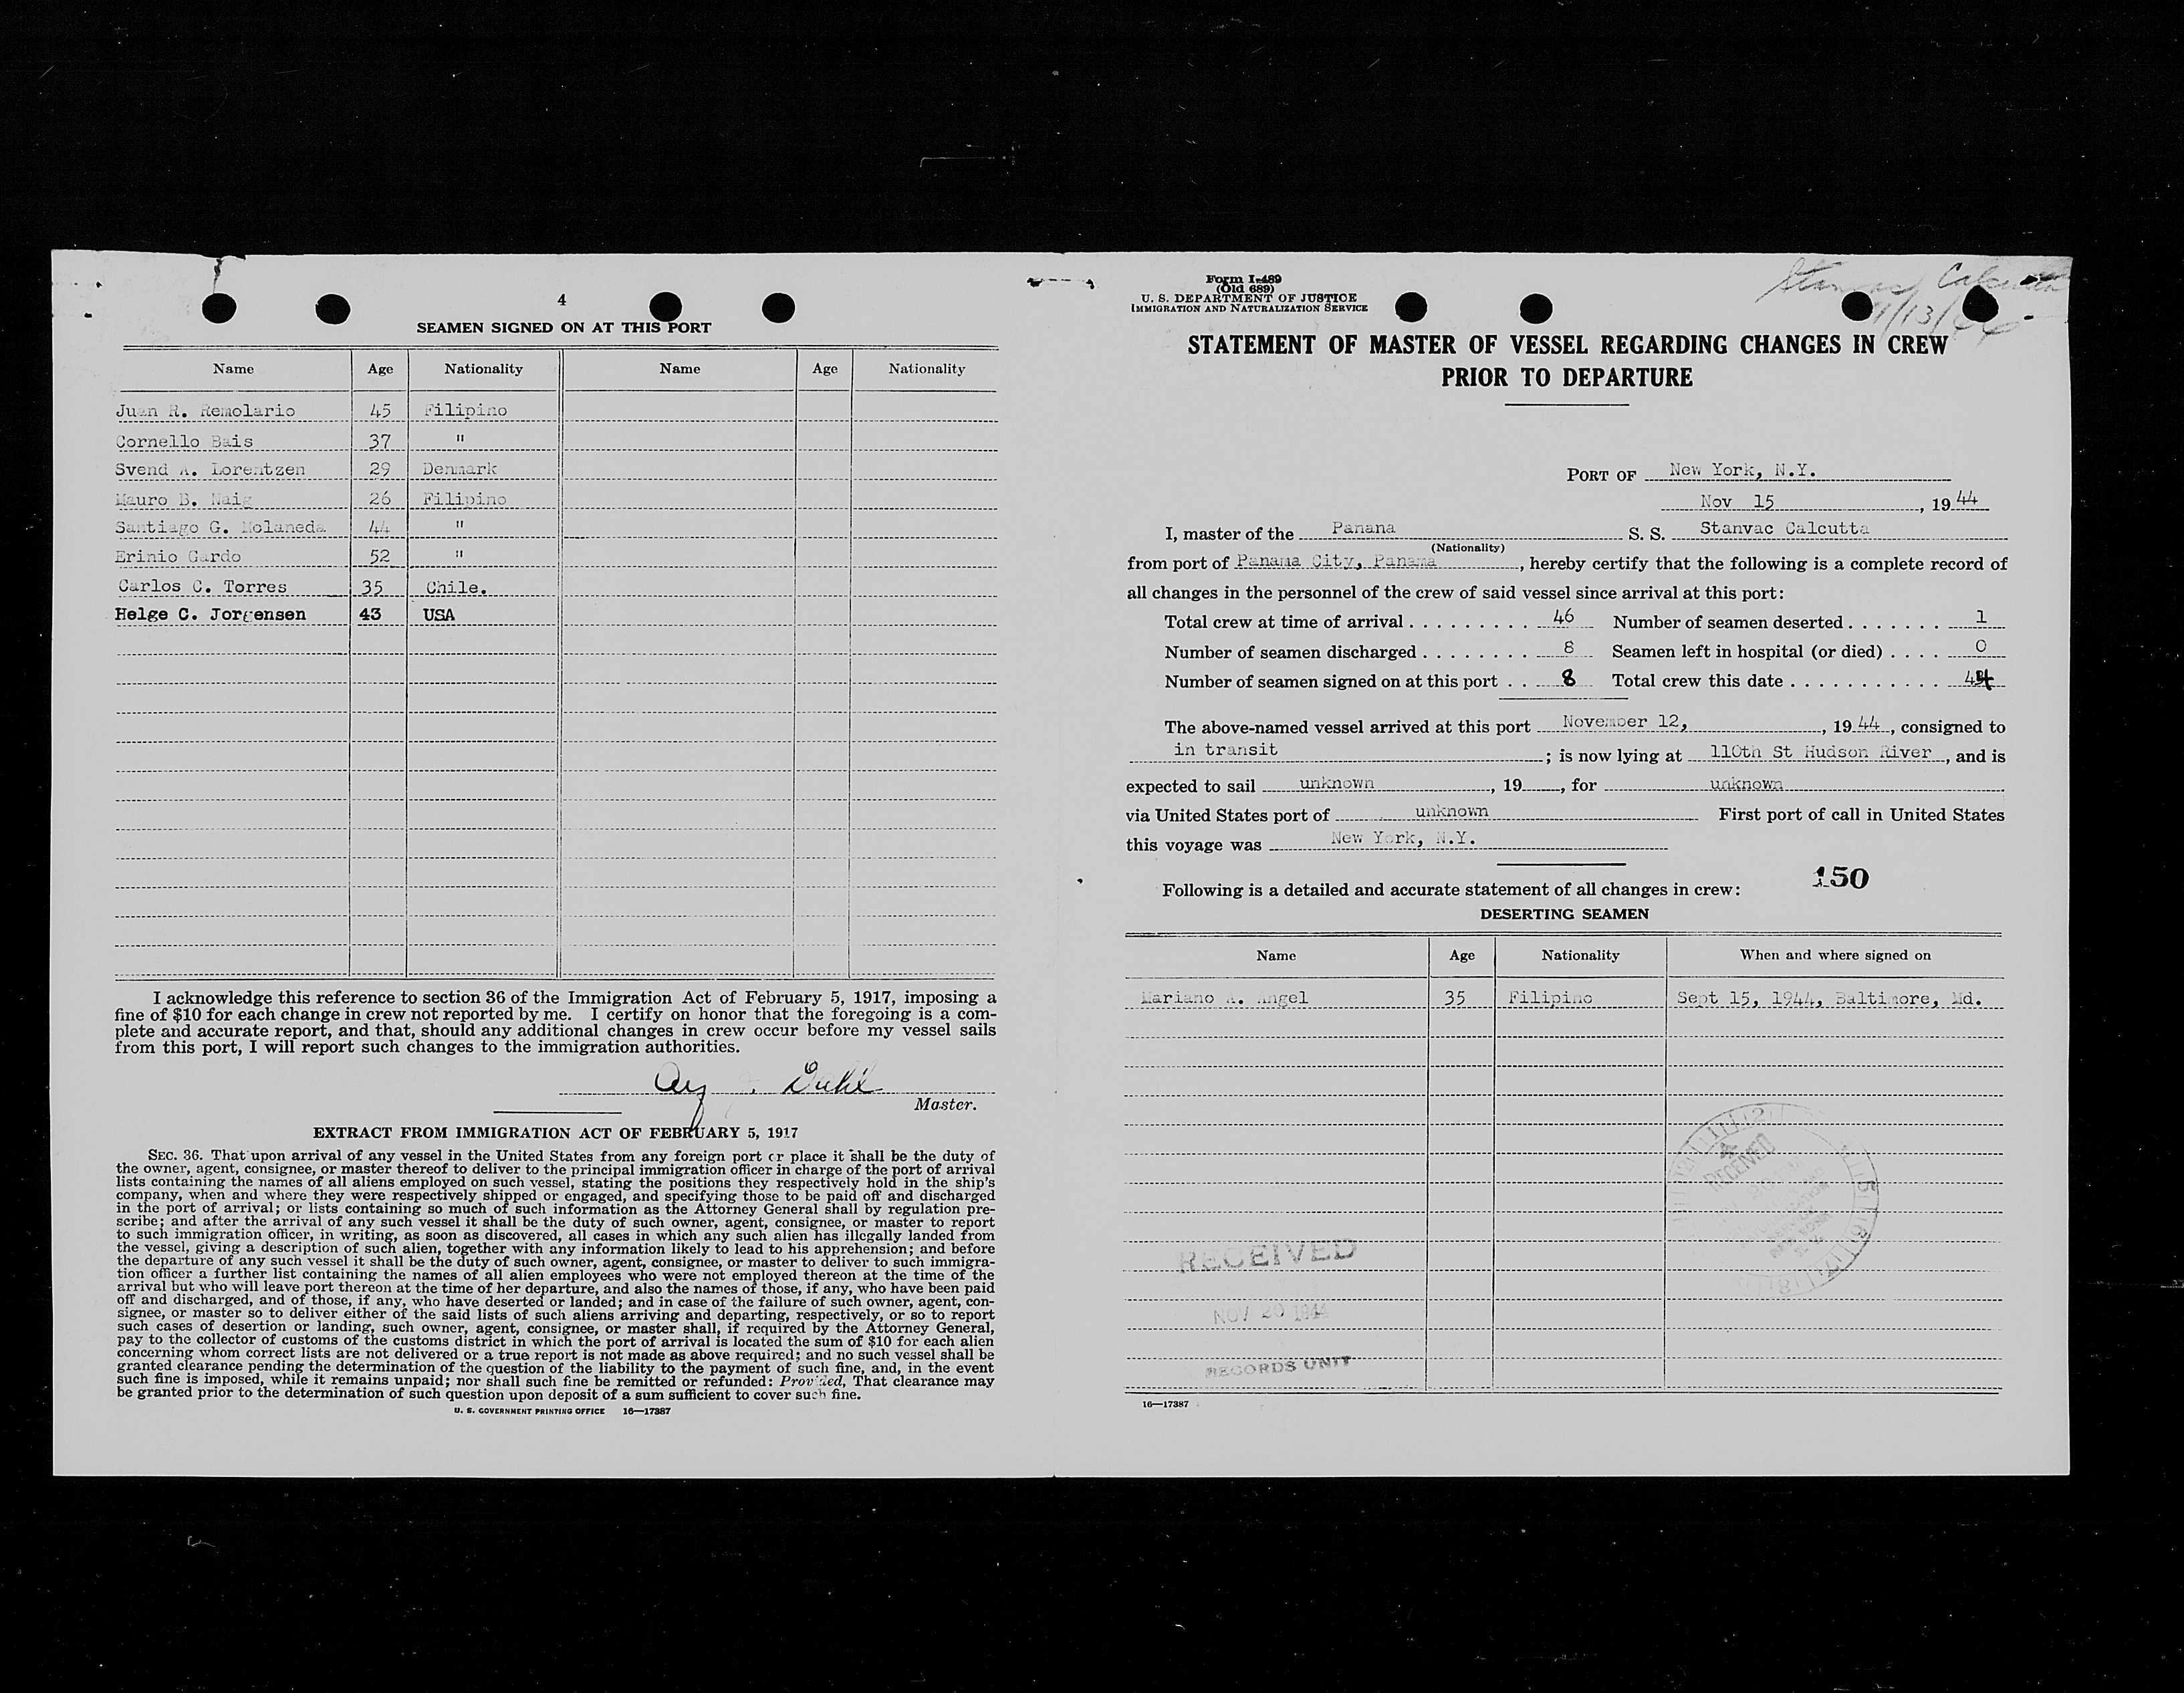 4
SEAMEN SIGNED ON AT THIS PORT
Name Age Nationality Name Age Nationality
Juan R. Remolario 45 Filipino
Cornello Bais 37 "
Svend A. Lorentzen 29 Denmark
Mauro B. Naig 26 Filipino
Santiago G. Molaneda 44 "
Erinio Gardo 52 "
Carlos C. Torres 35 Chile.
Helge C. Jorgensen 43 USA
I acknowledge this reference to section 36 of the Immigration Act of February 5, 1917, imposing a
fine of $10 for each change in crew not reported by me. I certify on honor that the foregoing is a com-
plete and accurate report, and that, should any additional changes in crew occur before my vessel sails
from this port, I will report such changes to the immigration authorities.
Master.
EXTRACT FROM IMMIGRATION ACT OF FEBRUARY 5, 1917
SEC. 36. That upon arrival of any vessel in the United States from any foreign port or place it shall be the duty of
the owner, agent, consignee, or master thereof to deliver to the principal immigration officer in charge of the port of arrival
lists containing the names of all aliens employed on such vessel, stating the positions they respectively hold in the ship's
company, when and where they were respectively shipped or engaged, and specifying those to be paid off and discharged
in the port of arrival; or lists containing so much of such information as the Attorney General shall by regulation pre-
scribe; and after the arrival of any such vessel it shall be the duty of such owner, agent, consignee, or master to report
to such immigration officer, in writing, as soon as discovered, all cases in which any such alien has illegally landed from
the vessel, giving a description of such alien, together with any information likely to lead to his apprehension; and before
the departure of any such vessel it shall be the duty of such owner, agent, consignee, or master to deliver to such immigra-
tion officer a further list containing the names of all alien employees who were not employed thereon at the time of the
arrival but who will leave port thereon at the time of her departure, and also the names of those, if any, who have been paid
off and discharged, and of those, if any, who have deserted or landed; and in case of the failure of such owner, agent, con-
signee, or master so to deliver either of the said lists of such aliens arriving and departing, respectively, or so to report
such cases of desertion or landing, such owner, agent, consignee, or master shall, if required by the Attorney General,
pay to the collector of customs of the customs district in which the port of arrival is located the sum of $10 for each alien
concerning whom correct lists are not delivered or a true report is not made as above required; and no such vessel shall be
granted clearance pending the determination of the question of the liability to the payment of such fine, and, in the event
such fine is imposed, while it remains unpaid; nor shall such fine be remitted or refunded: Provided, That clearance may
be granted prior to the determination of such question upon deposit of a sum sufficient to cover such fine.
U. S. GOVERNMENT PRINTING OFFICE 16—17387
Form I-489
(Old 689)
U. S. DEPARTMENT OF JUSTICE
IMMIGRATION AND NATURALIZATION SERVICE
Stanvac Calcutta
11/13/44
STATEMENT OF MASTER OF VESSEL REGARDING CHANGES IN CREW
PRIOR TO DEPARTURE
PORT OF New York, N.Y.
Nov 15, 1944
I, master of the Panana S. S. Stanvac Calcutta
(Nationality)
from port of Panama City, Panama, hereby certify that the following is a complete record of
all changes in the personnel of the crew of said vessel since arrival at this port:
Total crew at time of arrival . . . . . . . . . 46 Number of seamen deserted . . . . . . . 1
Number of seamen discharged . . . . . . . . 8 Seamen left in hospital (or died) . . . . 0
Number of seamen signed on at this port . . 8 Total crew this date . . . . . . . . . . .
The above-named vessel arrived at this port November 12, , 1944, consigned to
in transit ; is now lying at 110th St Hudson River, and is
expected to sail unknown, 19 , for unknown
via United States port of unknown First port of call in United States
this voyage was New York, N.Y.
150
Following is a detailed and accurate statement of all changes in crew:
DESERTING SEAMEN
Name Age Nationality When and where signed on
Mariano A. Angel 35 Filipino Sept 15, 1944, Baltimore, Md.
RECEIVED
RECEIVED
NOV 20 1944
RECORDS UNIT
16—17387